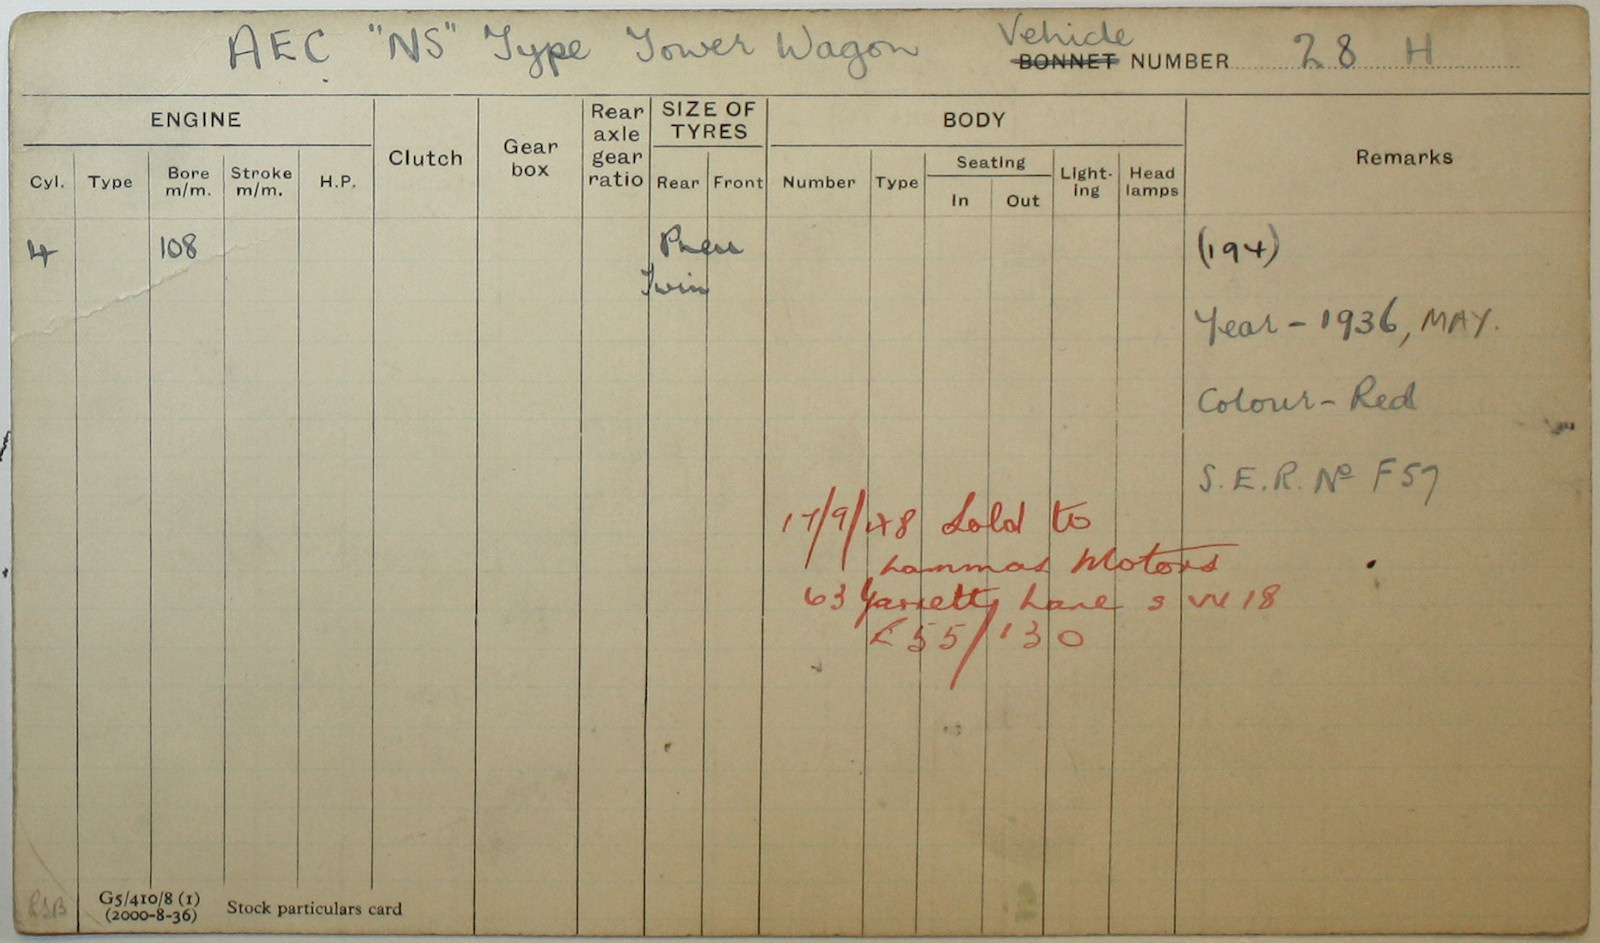 AEC "NS" Type Tower Wagon Vehicle
BONNET NUMBER 28 H
ENGINE
Clutch
Gear box
Rear axle gear ratio
SIZE OF TYRES
BODY
Remarks
Cyl. Type Bore m/m. Stroke m/m. H.P.
Rear Front
Number Type Seating In Out Light-ing Head lamps
4 108 Pneu
Twin
(194)
Year - 1936, MAY.
Colour - Red
S.E.R. No F57
17/9/48 Sold to
Lammas Motors
63 Garretts Lane S W 18
£55/130
RSB
G5/410/8 (1)
(2000-8-36)
Stock particulars card